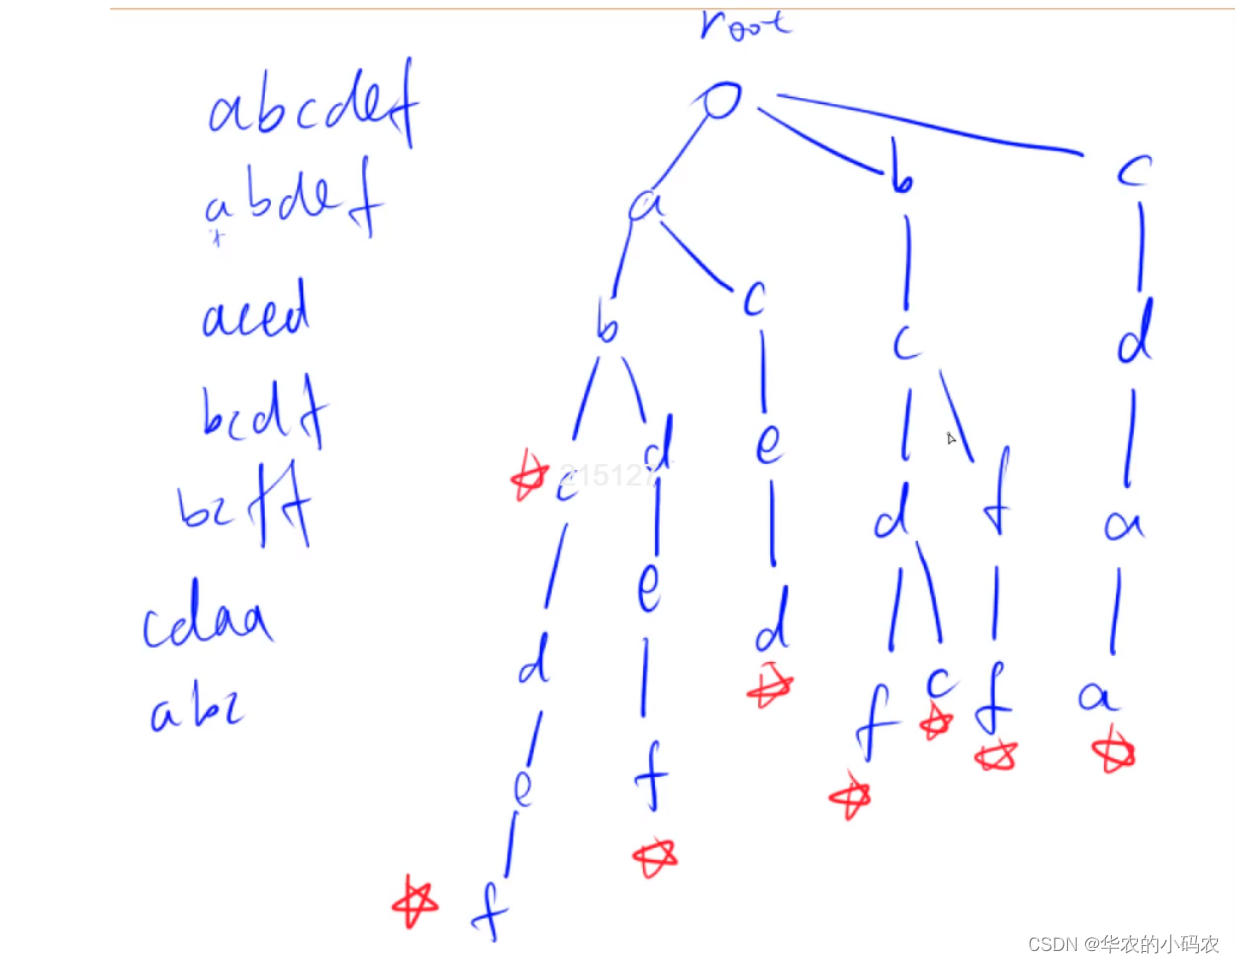 root
abcdef
abdef
aced
bcdf
bcff
cdaa
abc
a
b
c
b
c
c
d
c
d
e
d
e
d
f
a
d
e
d
f
c
f
a
e
f
f
215127
CSDN @华农的小码农